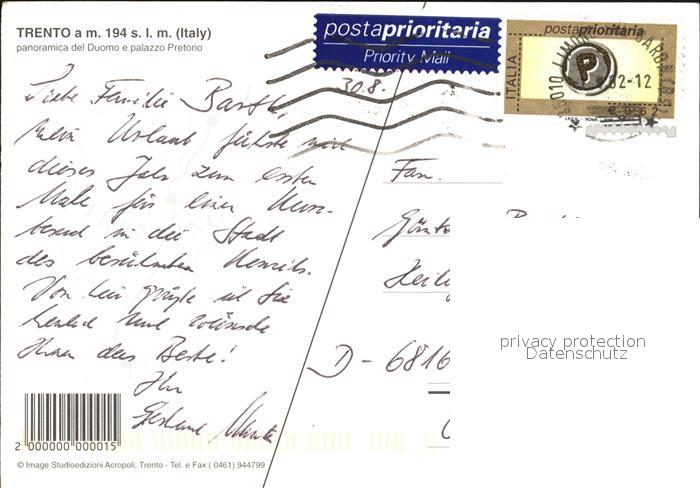 TRENTO a m. 194 s. l. m. (Italy)
panoramica del Duomo e palazzo Pretorio
postaprioritaria
Priority Mail
postaprioritaria
ITALIA
P
02-12
30.8.
Liebe Familie
mein Urlaub führte mich
dieses Jahr zum ersten
Male für einen
besuch in die Stadt
des berühmten
Von hier grüße ich Sie
herzlich und wünsche
Ihnen das Beste!
Ihr
Fam.
D - 6816
privacy protection
Datenschutz
2 000000 000015
© Image Studioedizioni Acropoli, Trento - Tel. e Fax ( 0461) 944799